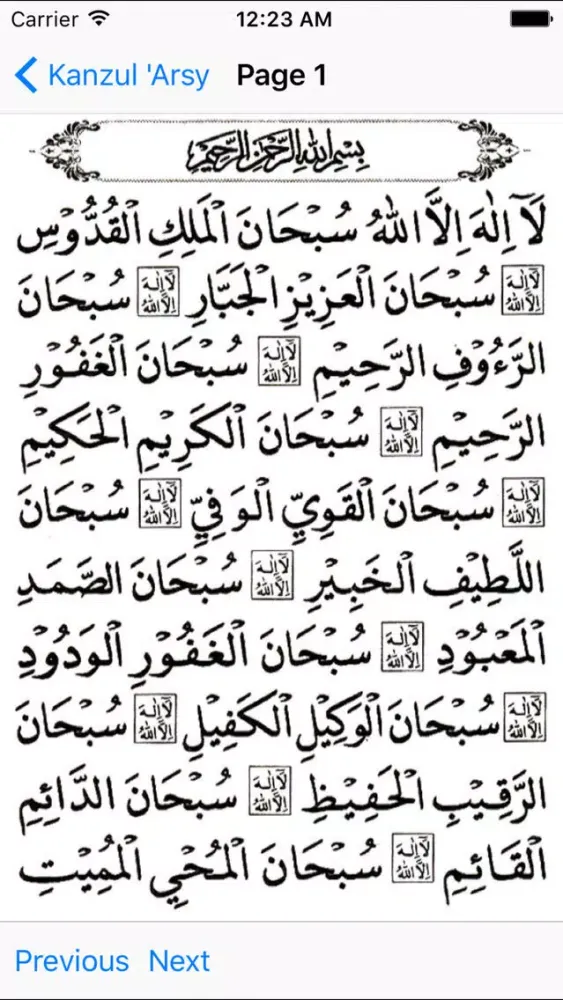 Carrier 12:23 AM
Kanzul 'Arsy Page 1
بِسْمِ اللهِ الرَّحْمٰنِ الرَّحِيْمِ
لَآ اِلٰهَ اِلَّا اللهُ سُبْحَانَ الْمَلِكِ الْقُدُّوْسِ
لَآاِلٰهَ اِلَّااللهُ سُبْحَانَ الْعَزِيْزِ الْجَبَّارِ لَآاِلٰهَ اِلَّااللهُ سُبْحَانَ
الرَّءُوْفِ الرَّحِيْمِ لَآاِلٰهَ اِلَّااللهُ سُبْحَانَ الْغَفُوْرِ
الرَّحِيْمِ لَآاِلٰهَ اِلَّااللهُ سُبْحَانَ الْكَرِيْمِ الْحَكِيْمِ
لَآاِلٰهَ اِلَّااللهُ سُبْحَانَ الْقَوِيِّ الْوَفِيِّ لَآاِلٰهَ اِلَّااللهُ سُبْحَانَ
اللَّطِيْفِ الْخَبِيْرِ لَآاِلٰهَ اِلَّااللهُ سُبْحَانَ الصَّمَدِ
الْمَعْبُوْدِ لَآاِلٰهَ اِلَّااللهُ سُبْحَانَ الْغَفُوْرِ الْوَدُوْدِ
لَآاِلٰهَ اِلَّااللهُ سُبْحَانَ الْوَكِيْلِ الْكَفِيْلِ لَآاِلٰهَ اِلَّااللهُ سُبْحَانَ
الرَّقِيْبِ الْحَفِيْظِ لَآاِلٰهَ اِلَّااللهُ سُبْحَانَ الدَّائِمِ
الْقَائِمِ لَآاِلٰهَ اِلَّااللهُ سُبْحَانَ الْمُحْيِ الْمُمِيْتِ
Previous Next